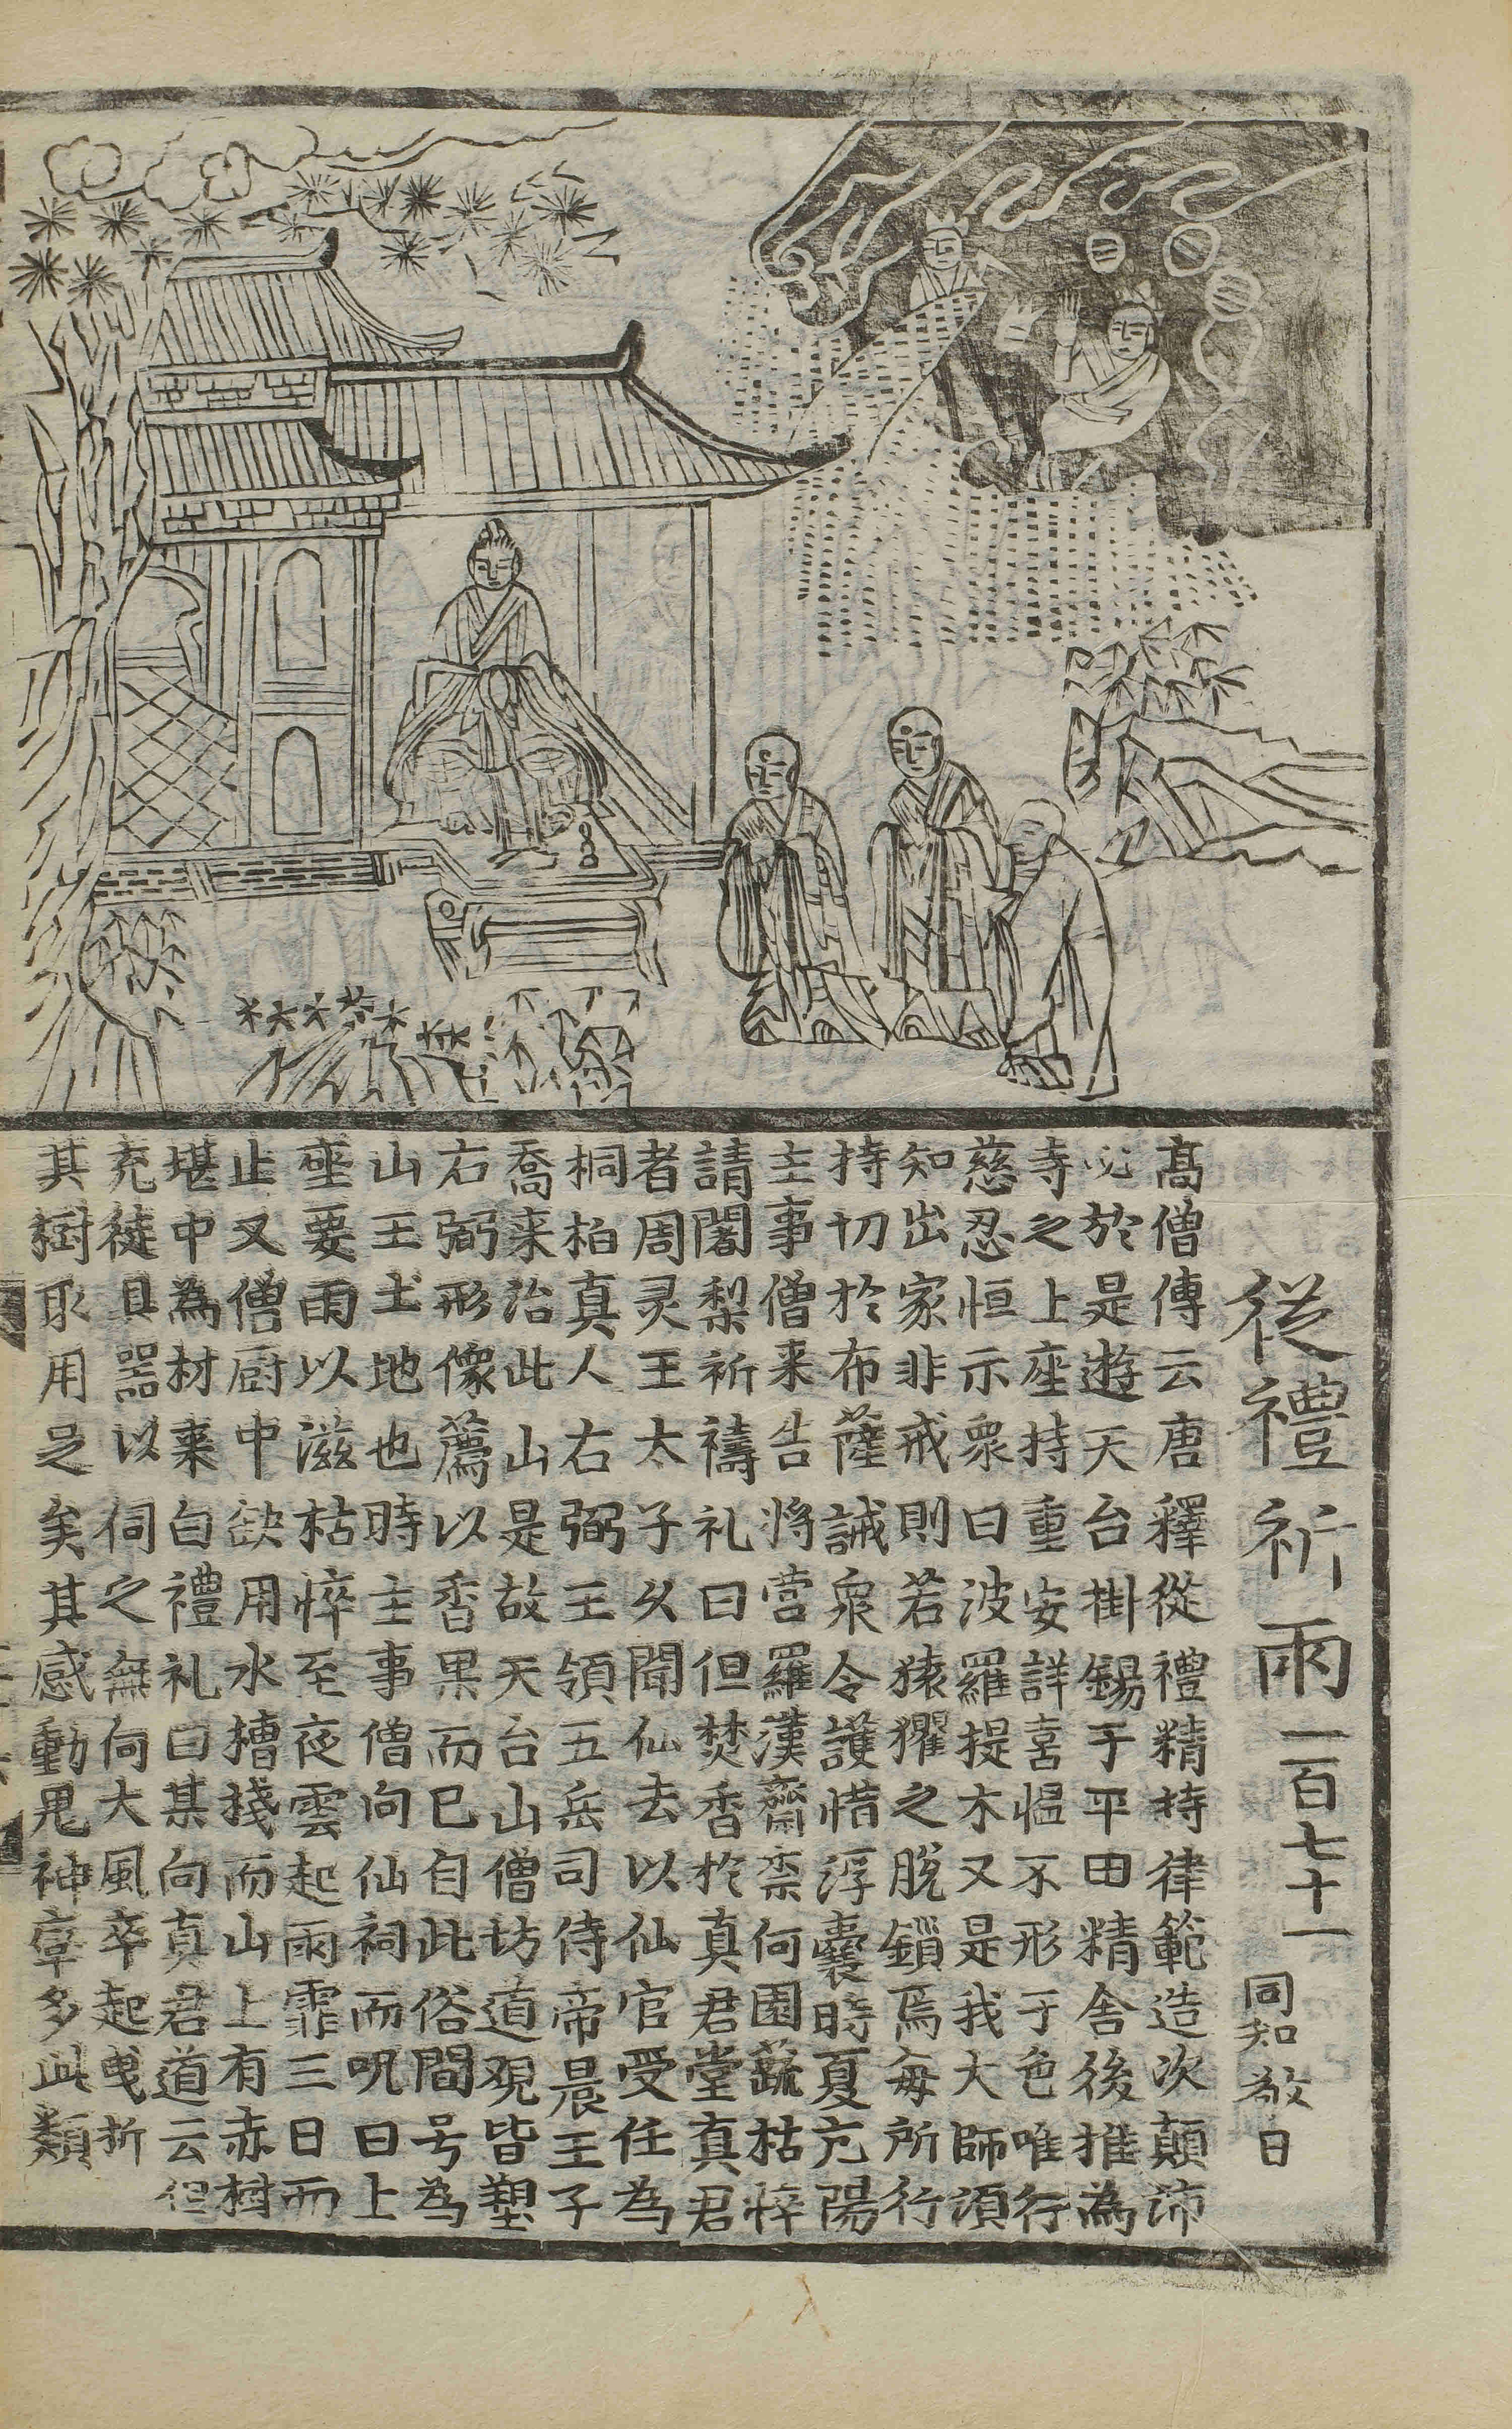 從禮祈雨一百七十一 同知敬日
髙僧傳云唐釋從禮精持律範造次顛沛
必於是遊天台掛錫于平田精舍後推為
寺之上座持重安詳喜慍不形于色唯行
慈忍恒示衆曰波羅提木叉是我大師須
知出家非戒則若猿玃之脫鎖焉每所行
持切於布薩誡衆令護惜浮囊時夏亢陽
主事僧来告將营羅漢齋柰何園蔬枯悴
請闍梨祈禱礼曰但焚香於真君堂真君
者周灵王太子久聞仙去以仙官受任為
桐柏真人右弼王領五岳司侍帝晨王子
喬来治此山是故天台山僧坊道觀皆塑
右弼形像薦以香果而已自此俗間号為
山王土地也時主事僧向仙祠而呪曰上
座要雨以滋枯悴至夜雲起雨霏三日而
止又僧厨中欲用水槽棧而山上有赤樹
堪中為材来白禮礼曰某向真君道云但
充徒具器以伺之無何大風卒起曳折
其樹取用足矣其感動鬼神率多此類